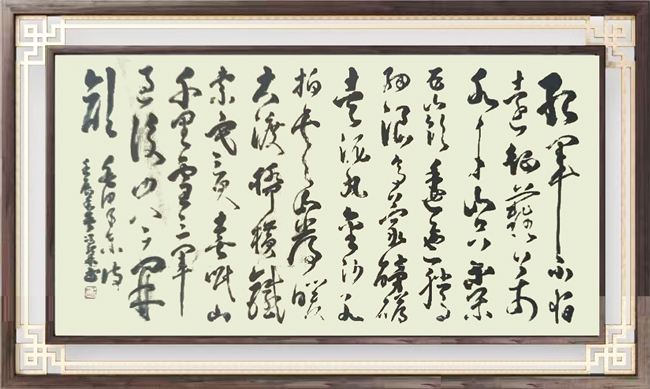 红军不怕
远征难万
水千山只等闲
五岭逶迤腾
细浪乌蒙磅礴
走泥丸金沙水
拍云崖暖
大渡桥横铁
索寒更喜岷山
千里雪三军
过后尽开
颜 毛泽东诗
壬辰年